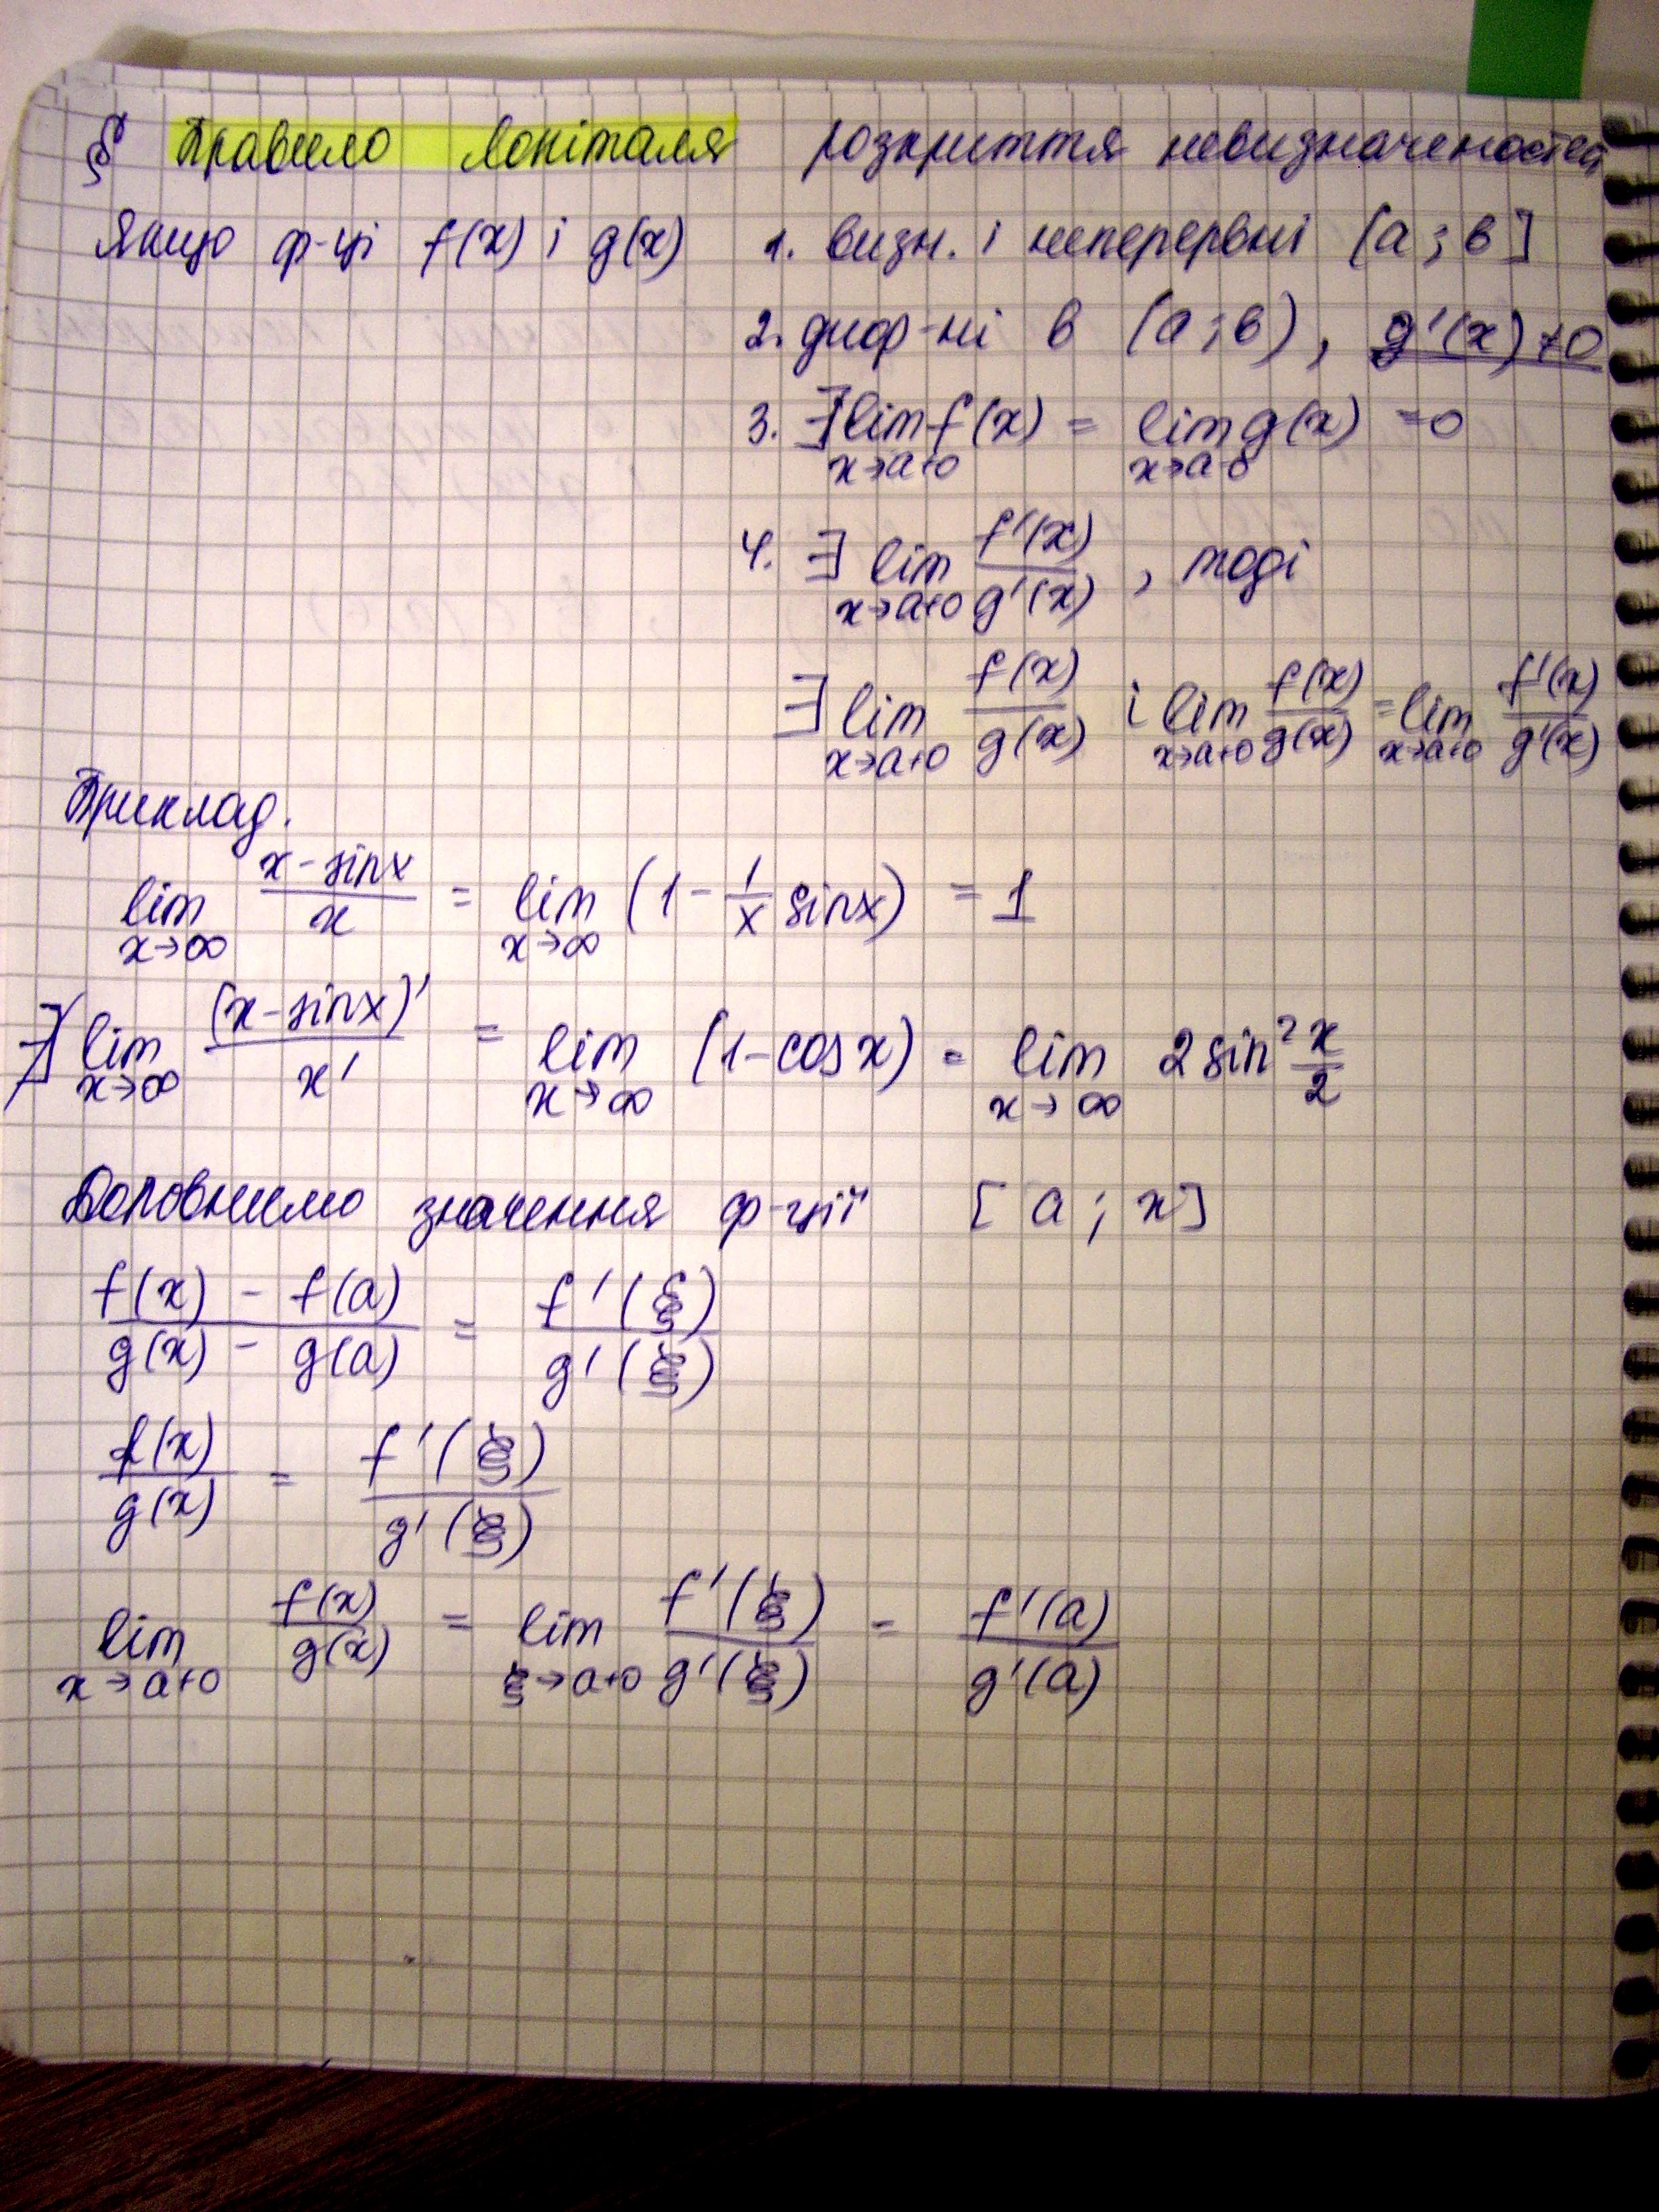 § Правило Лопіталя розкриття невизначеностей
Якщо ф-ці f(x) і g(x) 1. визн. і неперервні (a ; b]
2. диф-ні в (a ; b) , g'(x) ≠ 0
3. ∃ lim_{x→a+0} f(x) = lim_{x→a+0} g(x) = 0
4. ∃ lim_{x→a+0} f'(x)/g'(x) , тоді
∃ lim_{x→a+0} f(x)/g(x) і lim_{x→a+0} f(x)/g(x) = lim_{x→a+0} f'(x)/g'(x)
Приклад.
lim_{x→∞} (x - sinx)/x = lim_{x→∞} (1 - 1/x sinx) = 1
∄ lim_{x→∞} (x - sinx)'/x' = lim_{x→∞} (1 - cosx) = lim_{x→∞} 2 sin² x/2
Доповнимо значення ф-ції [ a ; x ]
(f(x) - f(a))/(g(x) - g(a)) = f'(ξ)/g'(ξ)
f(x)/g(x) = f'(ξ)/g'(ξ)
lim_{x→a+0} f(x)/g(x) = lim_{ξ→a+0} f'(ξ)/g'(ξ) = f'(a)/g'(a)